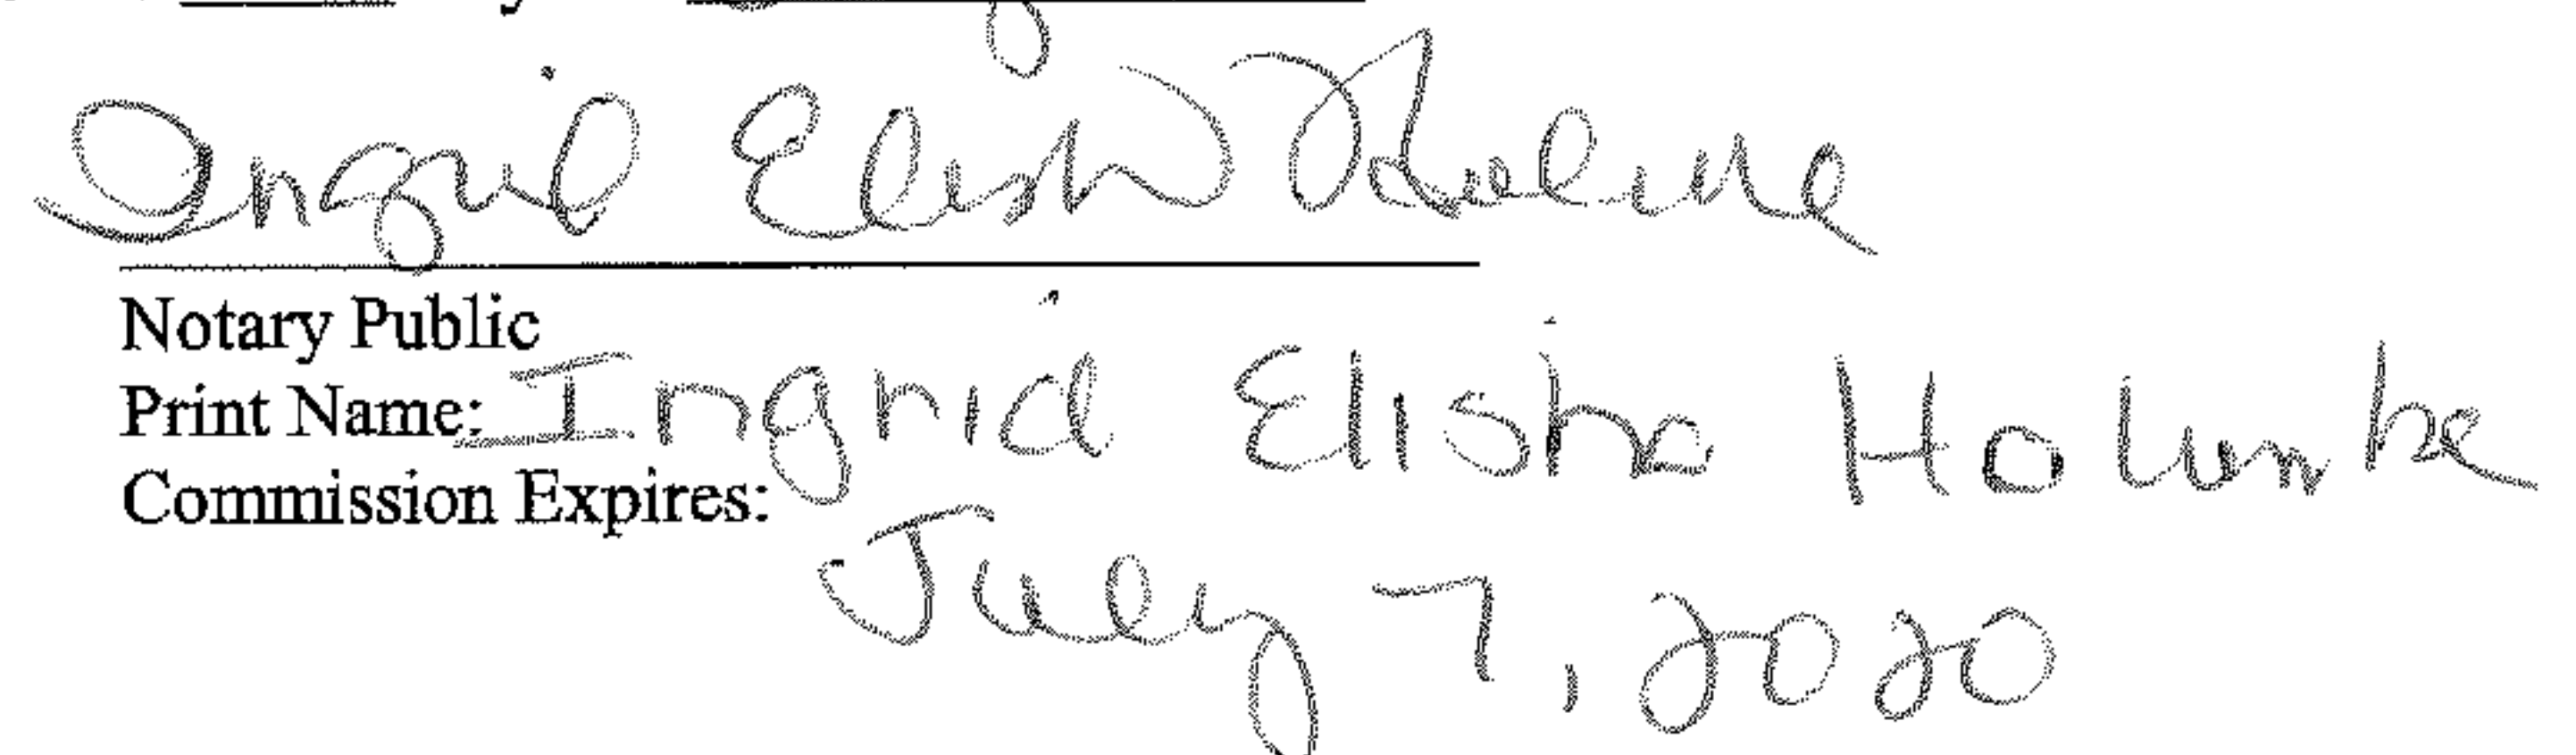 Ingrid Elisha
Notary Public
Print Name: Ingrid Elisha
Commission Expires:
July 7, 2020